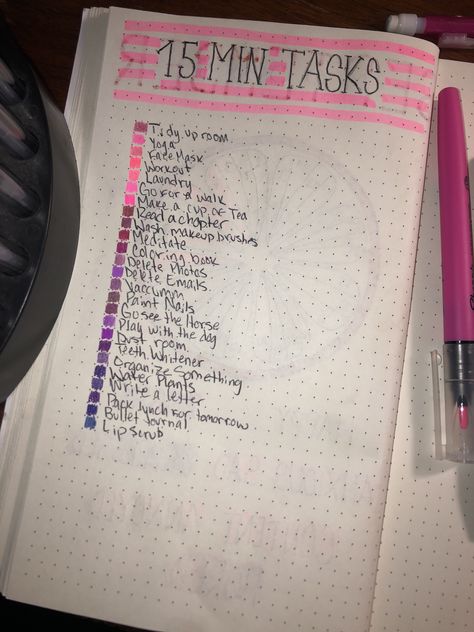 15 MIN TASKS
Tidy up room
Yoga
Face Mask
Workout
Laundry
Go for a walk
Make a cup of Tea
Read a chapter
Wash makeup brushes
Meditate
Coloring book
Delete Photos
Delete Emails
Vaccumm
Paint Nails
Go see the Horse
Play with the dog
Dust room
Teeth Whitener
Organize Something
Water Plants
Write a letter
Pack lunch for tomorrow
Bullet Journal
Lip scrub